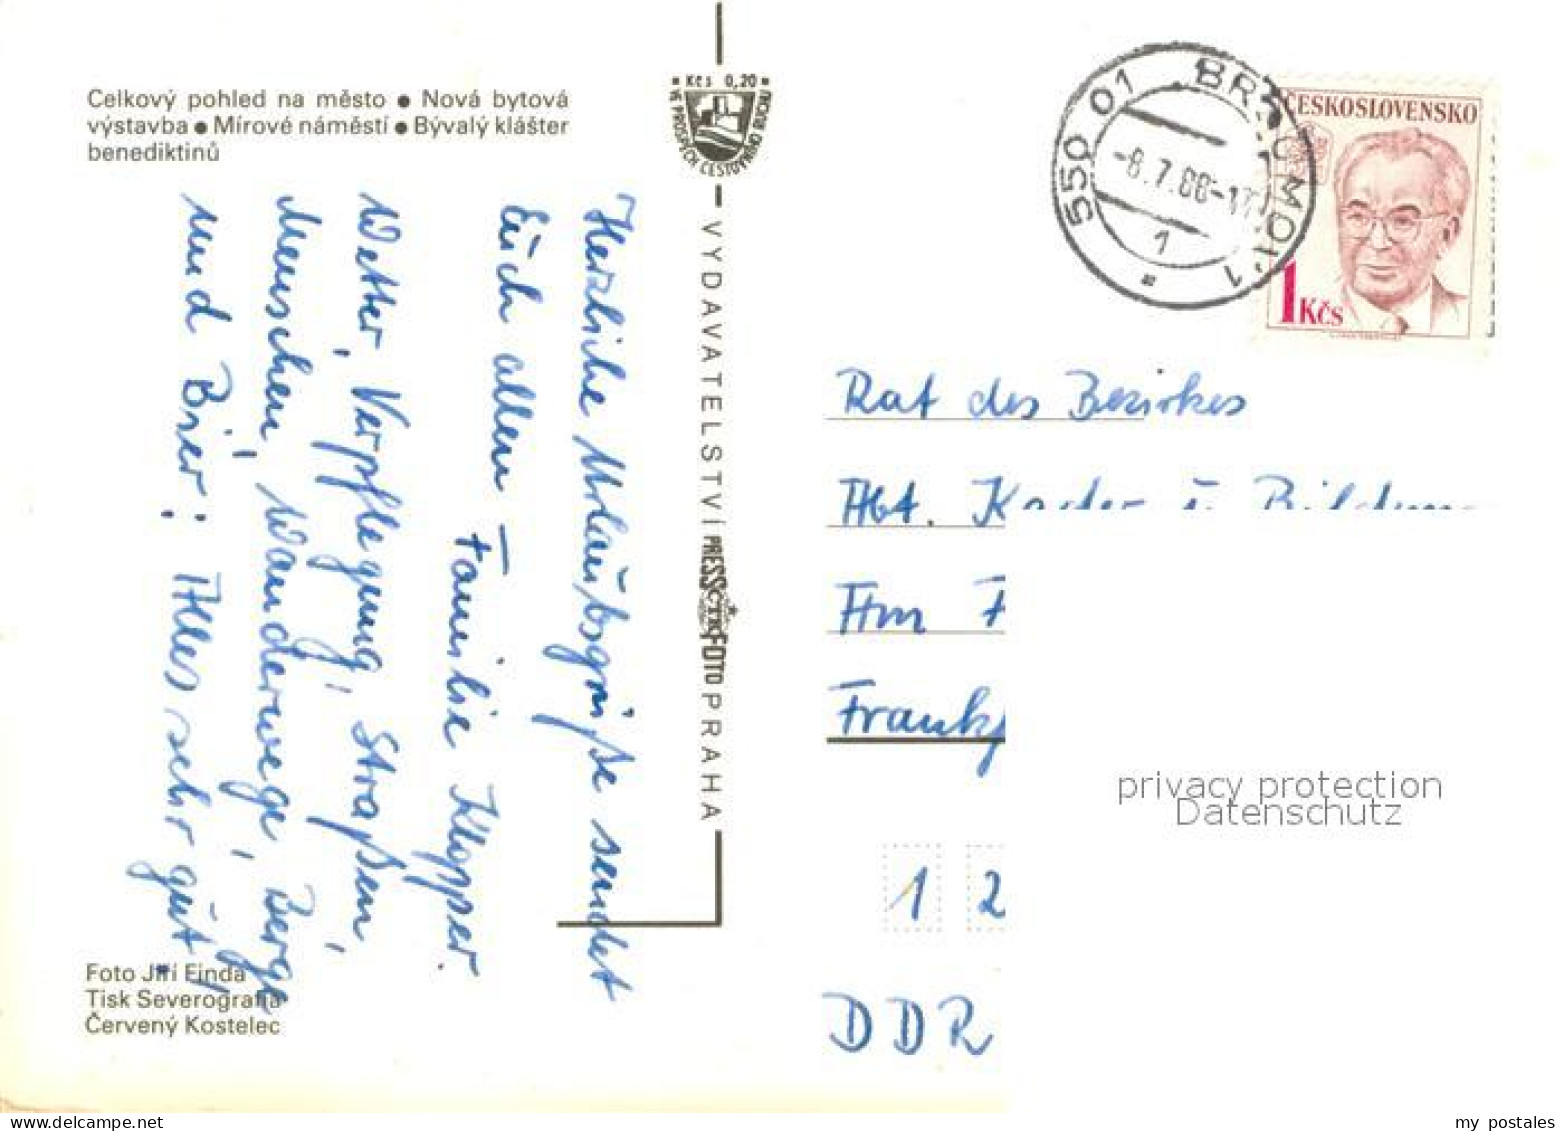 Celkový pohled na město ● Nová bytová
výstavba ● Mírové náměstí ● Bývalý klášter
benediktinů
Kčs 0,20
VE PROSPĚCH CESTOVNÍHO RUCHU
VYDAVATELSTVÍ PRESSFOTO PRAHA
Herzliche Urlaubsgrüße sendet
Euch allen Familie Klopper.
Wetter, Verpflegung, Straßen,
Menschen, Wanderwege, Berge
und Bier: Alles sehr gut!
Foto Jiří Finda
Tisk Severografia
Červený Kostelec
550 01 BROUMOV 1
-8.7.88-17
1
ČESKOSLOVENSKO
1 Kčs
Rat des Bezirkes
Abt. Kader u. Bildung
Frankf
1 2
DDR
privacy protection
Datenschutz
delcampe.net
my_postales